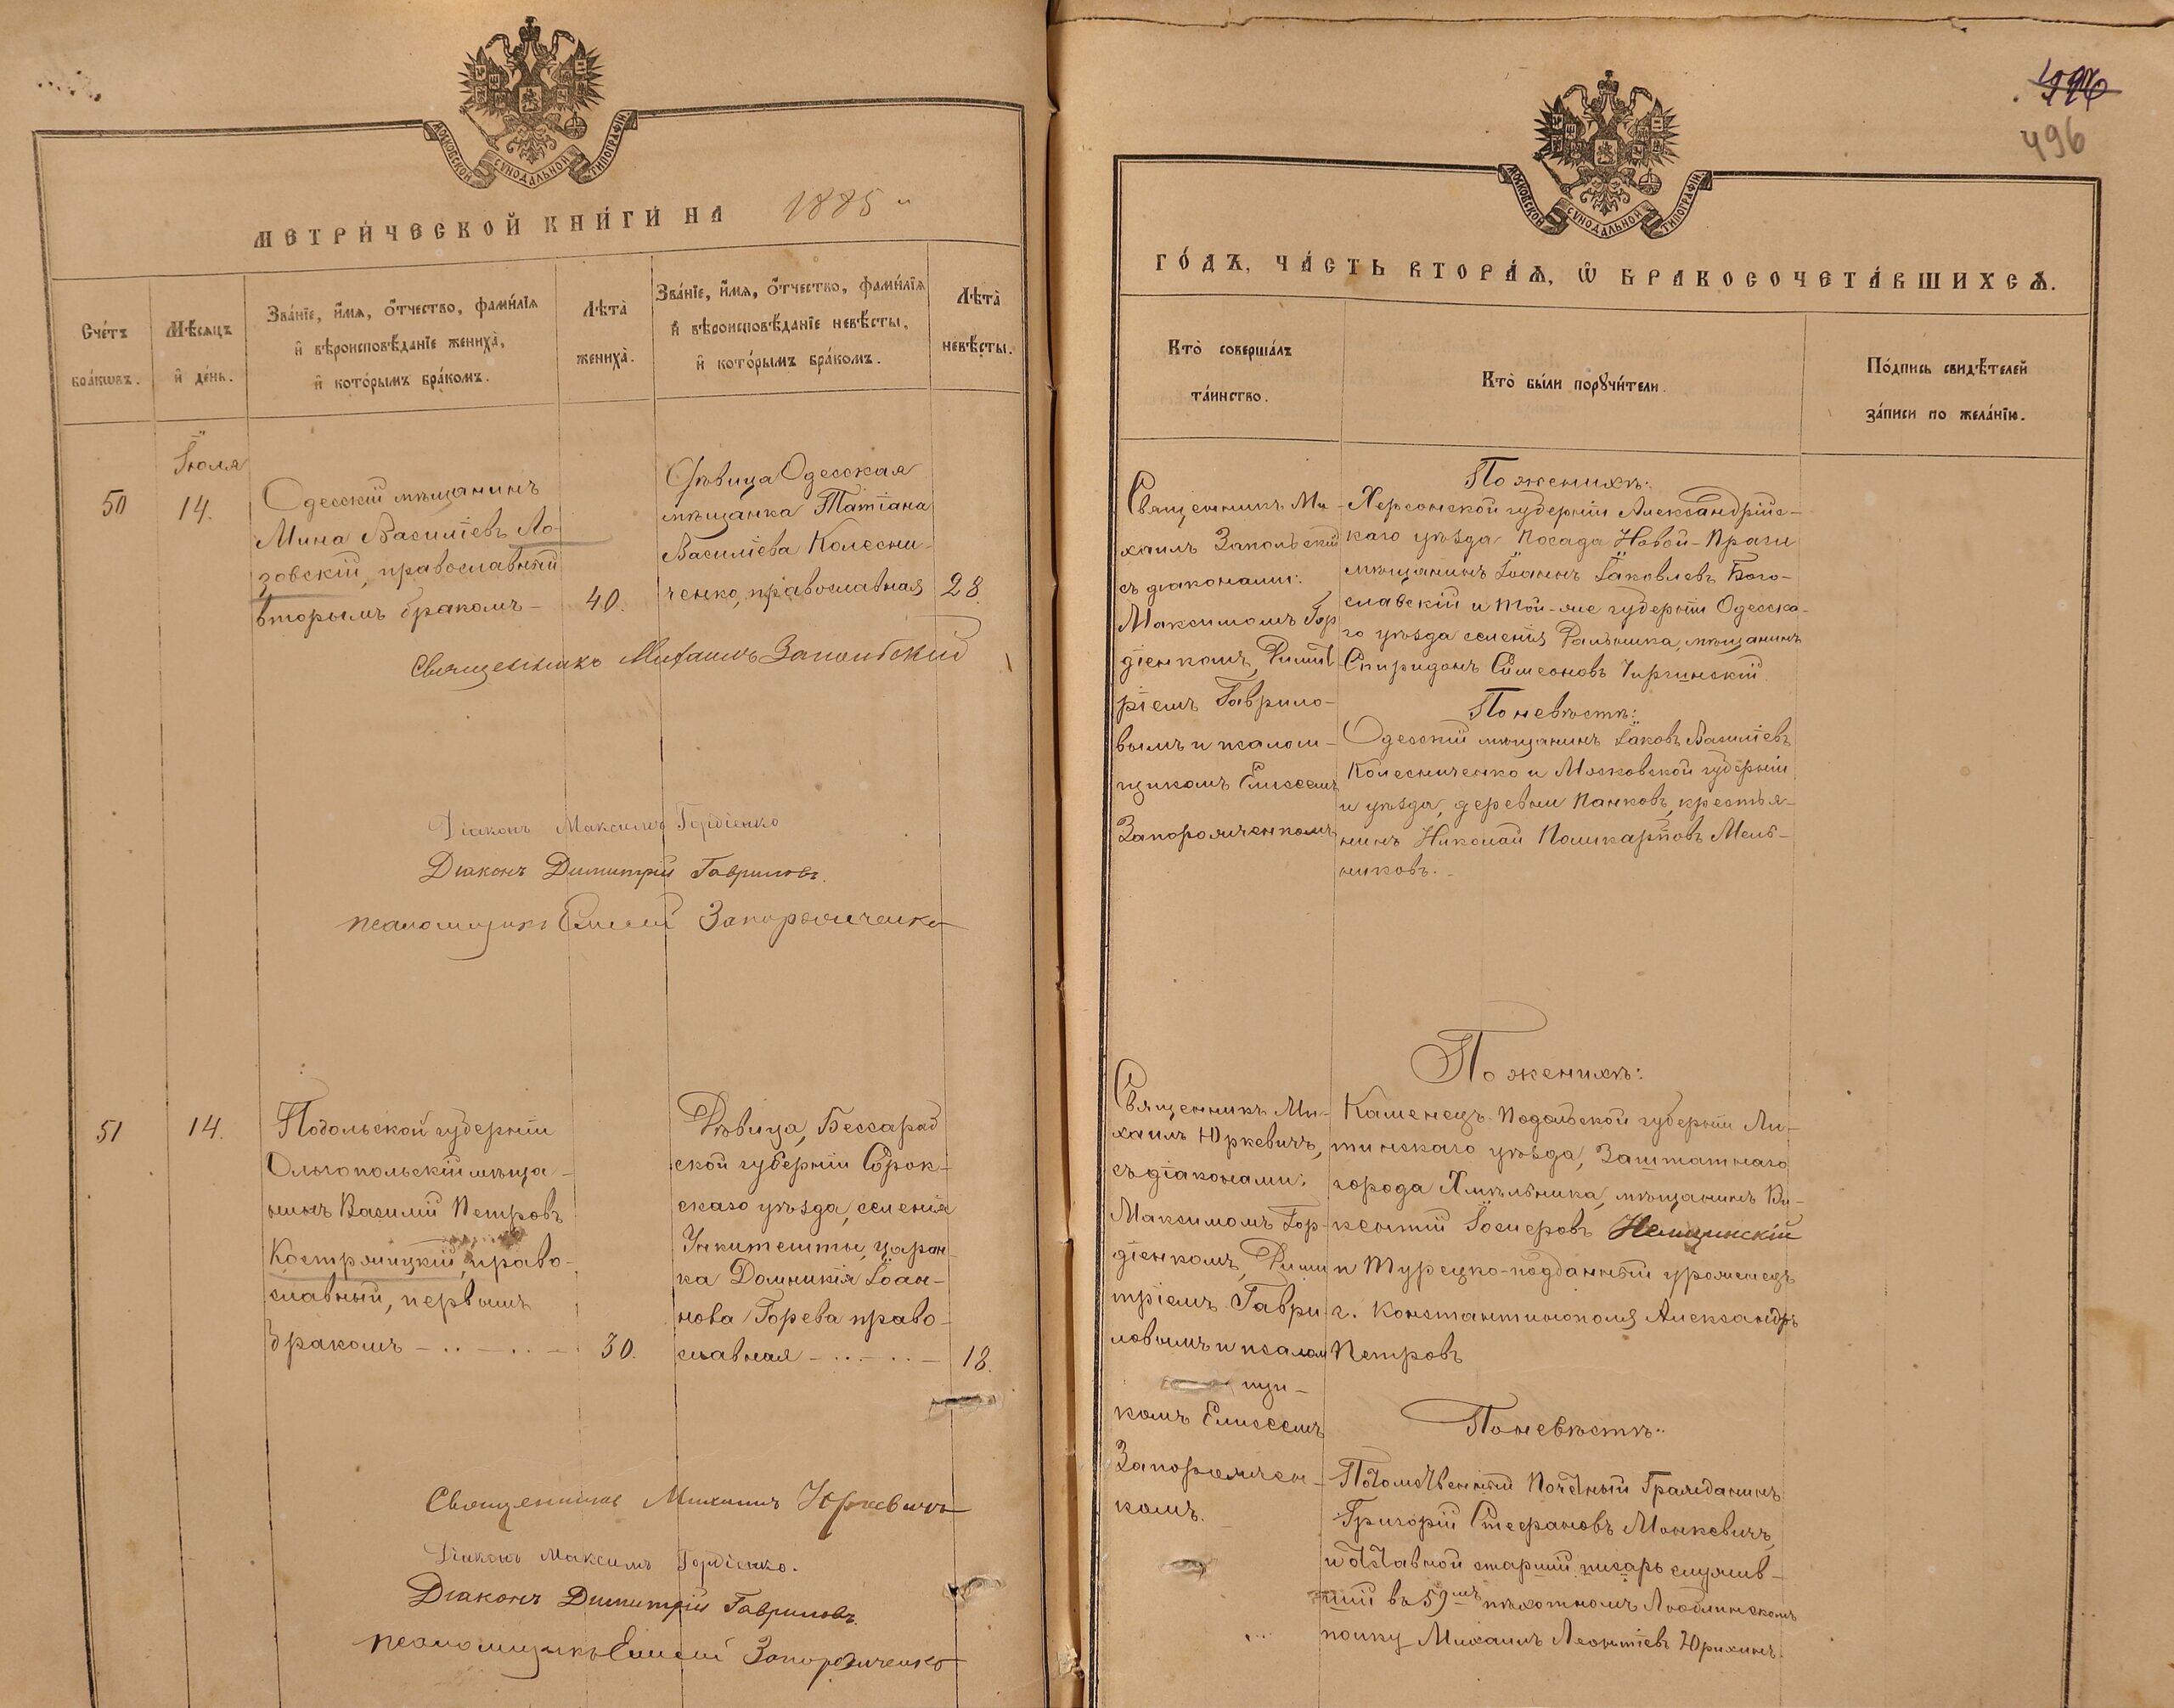 МОСКОВСКОЙ СѴНОДАЛЬНОЙ ТИПОГРАФІИ.
МЕТРИ́ЧЕСКОЙ КНИ́ГИ НА 1885
Сче́тъ бра́кωвъ.
Мѣ́сяцъ и҆ де́нь.
Зва́нїе, и҆́мѧ, ѻ҆́тчество, фами́лїѧ
и҆ вѣроисповѣ́данїе жениха̀,
и҆ кото́рымъ бра́комъ.
Лѣта̀
жениха̀.
Зва́нїе, и҆́мѧ, ѻ҆́тчество, фами́лїѧ
и҆ вѣроисповѣ́данїе невѣ́сты,
и҆ кото́рымъ бра́комъ.
Лѣта̀
невѣ́сты.
Іюля
50
14.
Одесскій мѣщанинъ
Мина Василіевъ Ло-
зовскій, православный
вторымъ бракомъ –
40.
Дѣвица Одесская
мѣщанка Татіана
Василіева Колесни-
ченко, православная
28.
Священникъ Михаилъ Запольскій
Діаконъ Максимъ Гордіенко
Діаконъ Димитрій Гавриловъ.
псаломщикъ Елисей Запорожченко
51
14.
Подольской губерніи
Ольгопольскій мѣща-
нинъ Василій Петровъ
Костржицкій, право-
славный, первымъ
бракомъ
30.
Дѣвица, Бессараб
ской губерніи Сорок-
скаго уѣзда, селенія
царан-
ка Домникія Іоан-
нова Горева право-
славная
18.
Священникъ Михаилъ Юркевичъ
Діаконъ Максимъ Гордіенко.
Діаконъ Димитрій Гавриловъ.
псаломщикъ Елисей Запорожченко
496
МОСКОВСКОЙ СѴНОДАЛЬНОЙ ТИПОГРАФІИ.
ГО́ДЪ, ЧА́СТЬ ВТОРА́Ѧ, Ѽ БРАКОСОЧЕТА́ВШИХСѦ.
Кто̀ соверша́лъ
та́инство.
Кто̀ бы́ли порꙋчи́тели.
По́дпись свидѣ́телей
за́писи по жела́нїю.
Священникъ Ми-
хаилъ Запольскій
съ діаконами:
Максимомъ Гор
діенкомъ, Димит
ріемъ Гаврило-
вымъ и псалом-
щикомъ Елисеемъ
Запорожченкомъ
По женихѣ:
Херсонской губерніи Александрійс-
каго уѣзда посада Новой-Праги
мѣщанинъ Іоаннъ Іаковлевъ Бого-
славскій и той-же губерніи Одесска-
го уѣзда селенія мѣщанинъ
Спиридонъ Симеоновъ
По невѣстѣ:
Одесскій мѣщанинъ Іаковъ Василіевъ
Колесниченко и Московской губерніи
и уѣзда, деревни Панковъ, крестья-
нинъ Николай Поликарповъ Мель-
никовъ.
Священникъ Ми-
хаилъ Юркевичъ,
съ діаконами:
Максимомъ Гор-
діенкомъ, Дими
тріемъ Гаври
ловымъ и псалом
щи-
комъ Елисеемъ
Запорожчен-
комъ.
По женихѣ:
Каменецъ-Подольской губерніи Ли-
тинскаго уѣзда, Заштатнаго
города Хмѣльника, мѣщанинъ Ви-
кентій Іосифовъ
и Турецко-подданный уроженецъ
г. Константинополя Александръ
Петровъ
По невѣстѣ:
Потомственный Почетный Гражданинъ
Григорій Стефановъ Монкевичъ,
и отставной старшій писарь служив-
шій въ 59мъ пѣхотномъ Люблинскомъ
полку Михаилъ Леонтіевъ Юрихинъ.